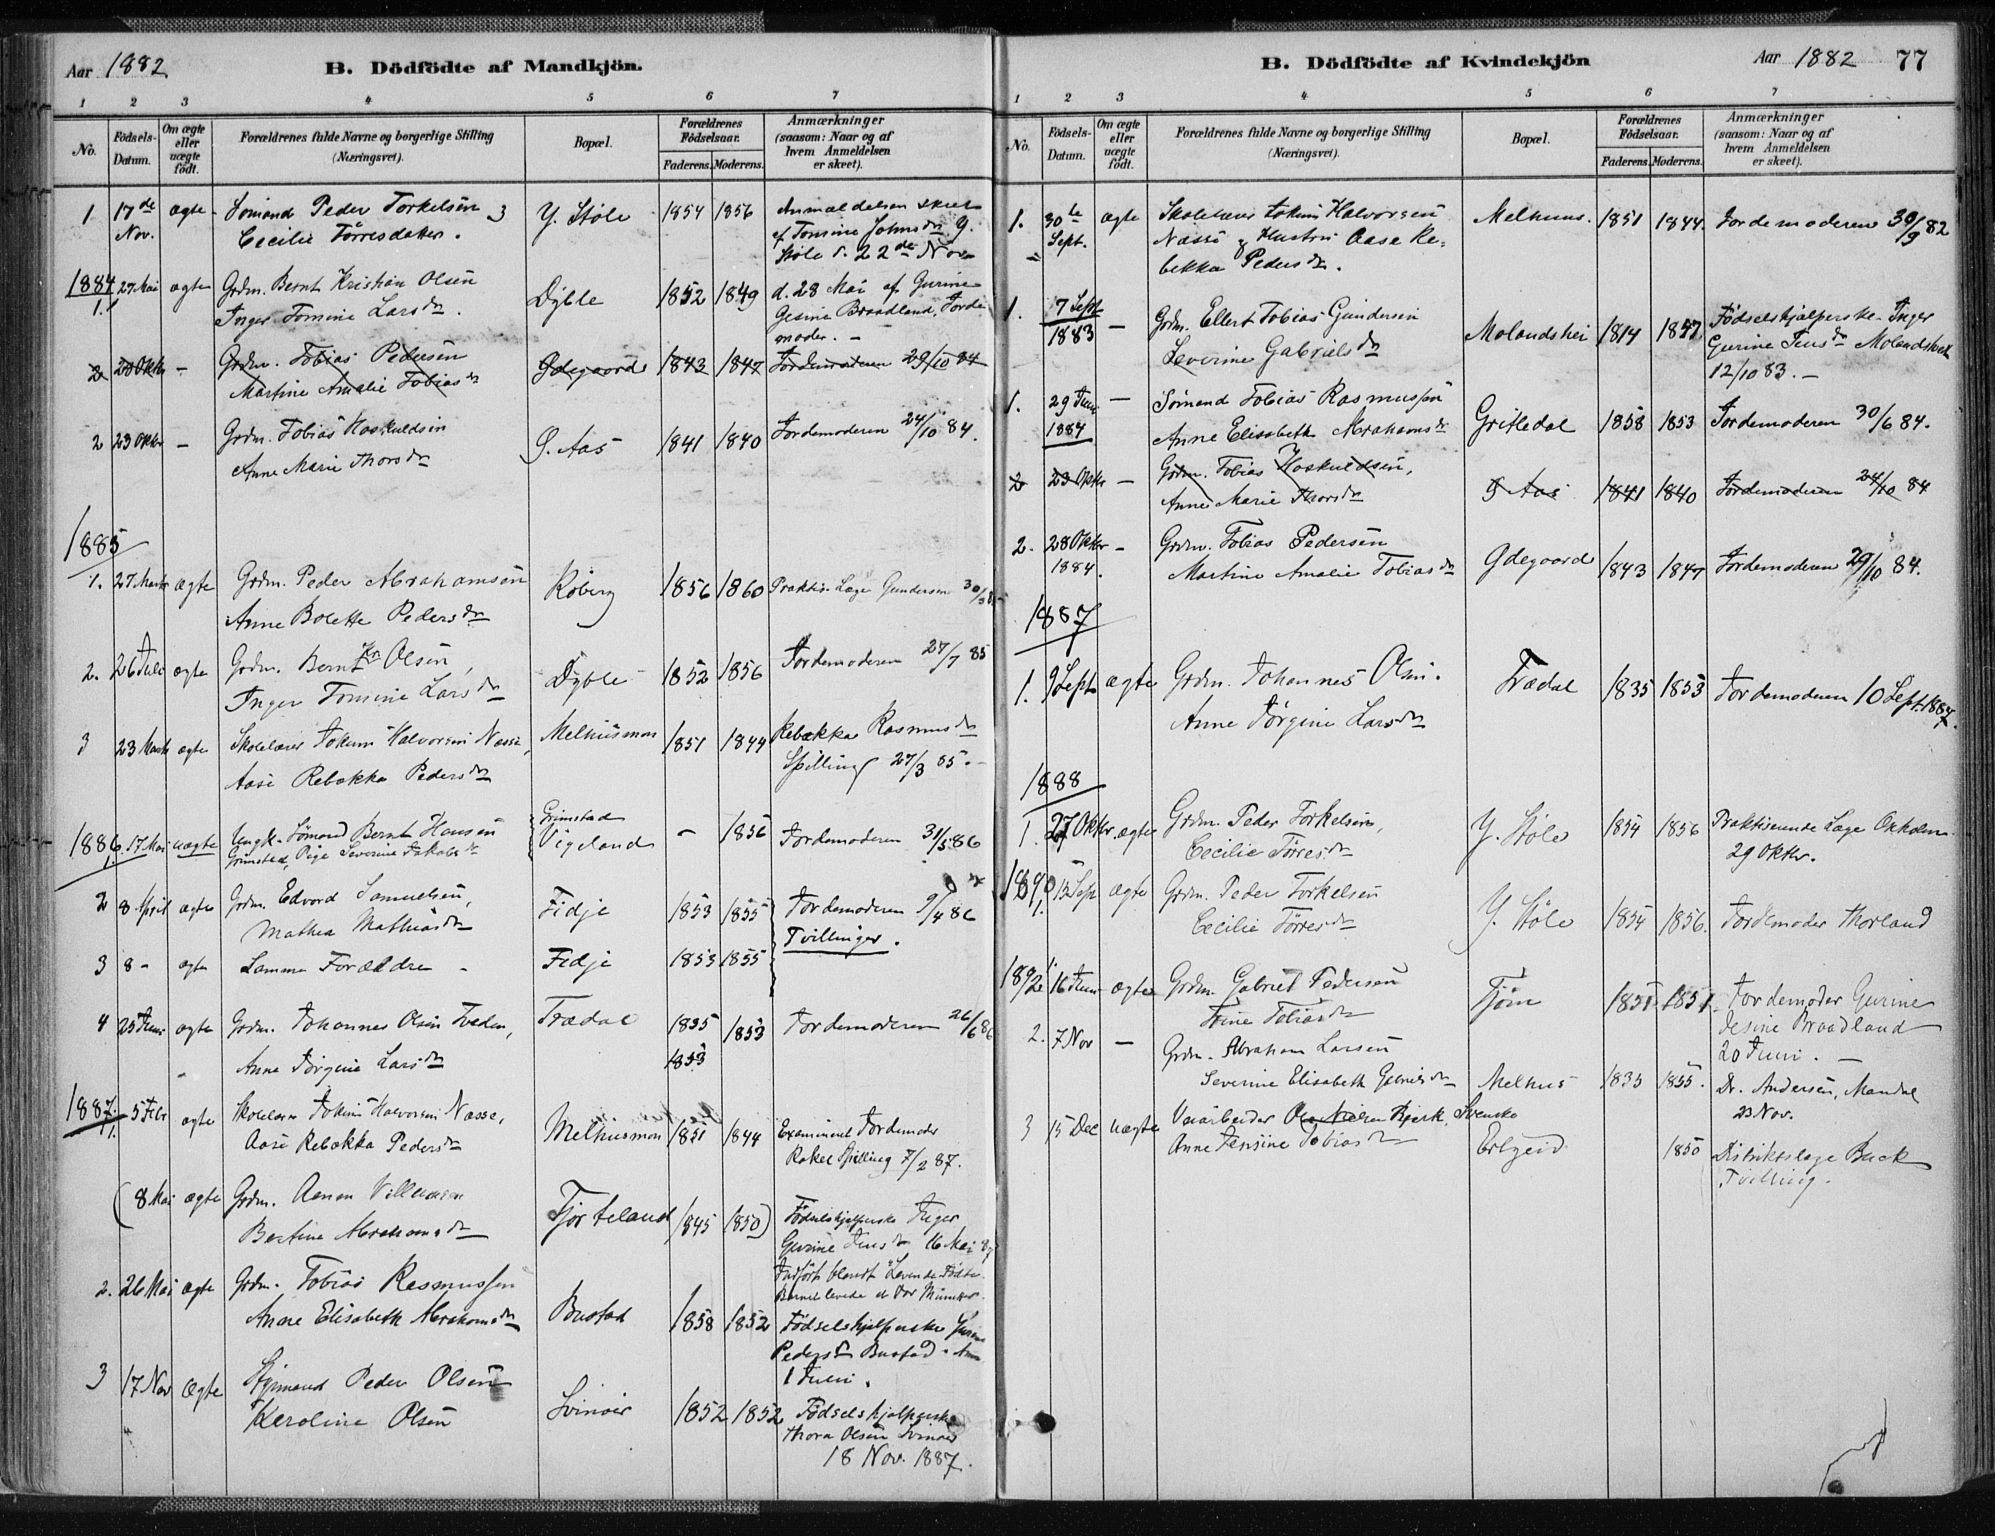 Aar 1882
B. Dödfödte af Mandkjön.
1 2 3 4 5 6 7
No.
Födsels-Datum.
Om ægte eller uægte födt.
Forældrenes fulde Navne og borgerlige Stilling
(Næringsvei).
Bopæl.
Forældrenes Födselsaar.
Faderens. Moderens.
Anmærkninger
(saasom: Naar og af
hvem Anmeldelsen
er skeet).
1 17de Nov. ægte Sömand Peder Torkelsen Y. Støle 1854 1856 Anmældelsen skeet
Cecilie Törresdatter. af Tomine Johnsdr Y.
Støle d. 22de Nov.
1884
1. 27 Mai ægte Grdm. Bernt Kristian Olsen Dyble 1852 1849 d. 28 Mai af Gurine
Inger Tomine Larsdr. Gesine Braadland, Jorde
moder. -
2 28 Oktbr - Grdm. Tobias Pedersen Ødegaard 1843 1847 Jordemoderen 29/10 84
Martine Amalie Tobiasdr
2 23 Oktbr - Grdm. Tobias Hoskuldsen Ø. Aas 1841 1840 Jordemoderen 24/10 84.
Anne Marie Thorsdr
1885
1. 27 Marts ægte Grdm. Peder Abrahamsen Röberg 1856 1860 Praktis. Læge Gundersen 30/3
Anne Bolette Pedersdr
2. 26 Juli ægte Grdm. Bernt Kr. Olsen, Dyble 1852 1856 Jordemoderen 27/7 85
Inger Tomine Larsdr
3 23 Marts ægte Skolelærer Jokum Halvorsen Næsse, Melhusmon 1851 1844 Rebække Rasmusdr
Aase Rebekka Pedersdr Spilling 27/3 85.
1886
1. 17 Mai uægte Ungk. Sömand Bernt Hansen Grimstad
Grimstad, Pige Severine Jakobsdr Vigeland - 1856 Jordemoderen 31/5 86
2 8 April ægte Grdm. Edvard Samuelsen, Fidje 1853 1855 Jordemoderen 9/4 86
Mathea Mathiasdr Tvillinger.
3 8 - ægte Samme Forældre - Fidje 1853 1855
4 25 Juni ægte Grdm. Johannes Olsen Tvedan, Trædal 1835 1853 Jordemoderen 26/6 86
Anne Jörgine Larsdr 1853
1887.
1. 5 Febr ægte Skolelærer Jokum Halvorsen Næsse, Melhusmon 1851 1844 Examineret Jordemoder
Aase Rebekka Pedersdr Rakel Spilling 7/2 87.
(8 Mai ægte Grdm. Aanen Villumsen Tjørteland 1845 1850) Födselshjælperske Inger
Bertine Abrahamsdr Gurine Jensdr 16 Mai 87
Indfört blandt "Levende Födte.
Barnet levede et Par Minutter.
2. 26 Mai ægte Grdm. Tobias Rasmussen Bustad 1858 1852 Födselshjælperske
Anne Elisabeth Abrahamsdr Pedersdr Bustad
1 Juni.
3 17 Nov ægte Styrmand Peder Olsen Svinør 1852 1852 Födselshjælperske
Karoline Olsen Thora Olsen Svinør
18 Nov. 1887.
B. Dödfödte af Kvindekjön
Aar 1882 77
1 2 3 4 5 6 7
No.
Födsels-Datum.
Om ægte eller uægte födt.
Forældrenes fulde Navne og borgerlige Stilling
(Næringsvei).
Bopæl.
Forældrenes Födselsaar.
Faderens. Moderens.
Anmærkninger
(saasom: Naar og af
hvem Anmeldelsen
er skeet).
1. 30te Sept. ægte Skolelærer Jokum Halvorsen Melhus. 1851 1844. Jordemoderen 30/9 82
Næsse & Hustru Aase Re-
bekka Pedersdr.
1. 7 Sept 1883 - Grdm. Ellert Tobias Gundersen Molandshei 1814 1847 Födselshjælperske Inger
Severine Gabrielsdr Gurine Jensdr
12/10 83. -
1. 29 Juni 1884 - Sömand Tobias Rasmussen Gritledal 1858 1853 Jordemoderen 30/6 84.
Anne Elisabeth Abrahamsdr
2 23 Oktbr - Grdm. Tobias Hoskuldsen, Ø Aas 1841 1840 Jordemoderen 24/10 84
Anne Marie Thorsdr
2. 28 Oktbr 1884. - Grdm. Tobias Pedersen Ødegaard 1843 1847 Jordemoderen 29/10 84.
Martine Amalie Tobiasdr
1887
1. 9 Sept ægte Grdm. Johannes Olsen. Trædal 1835 1853 Jordemoderen 10 Sept. 1887.
Anne Jörgine Larsdr
1888
1. 27 Oktbr. ægte Grdm. Peder Torkelsen, Y. Støle 1854 1856 Praktiserende Læge
Cecilie Törresdr 29 Oktbr.
1890
1. 13 Sept ægte Grdm. Peder Torkelsen Y. Støle 1854 1856. Jordemoder Thorland
Cecilie Törresdr
1892
1. 16 Juni ægte Grdm. Gabriel Pedersen Tjøm 1851 1851 Jordemoder Gurine
Trine Tobiasdr Jesine Braadland
20 Juni. -
2. 7 Nov - Grdm. Abraham Larsen
Severine Elisabeth Gabrielsdr Melhus 1835 1855. Dr. Andersen, Mandal
23 Nov.
3 15 Dec uægte Veiarbeider Bjerk, Svenske
Anne Jensine Tobiasdr 1850 Distriktslæge Buck
Tvilling.